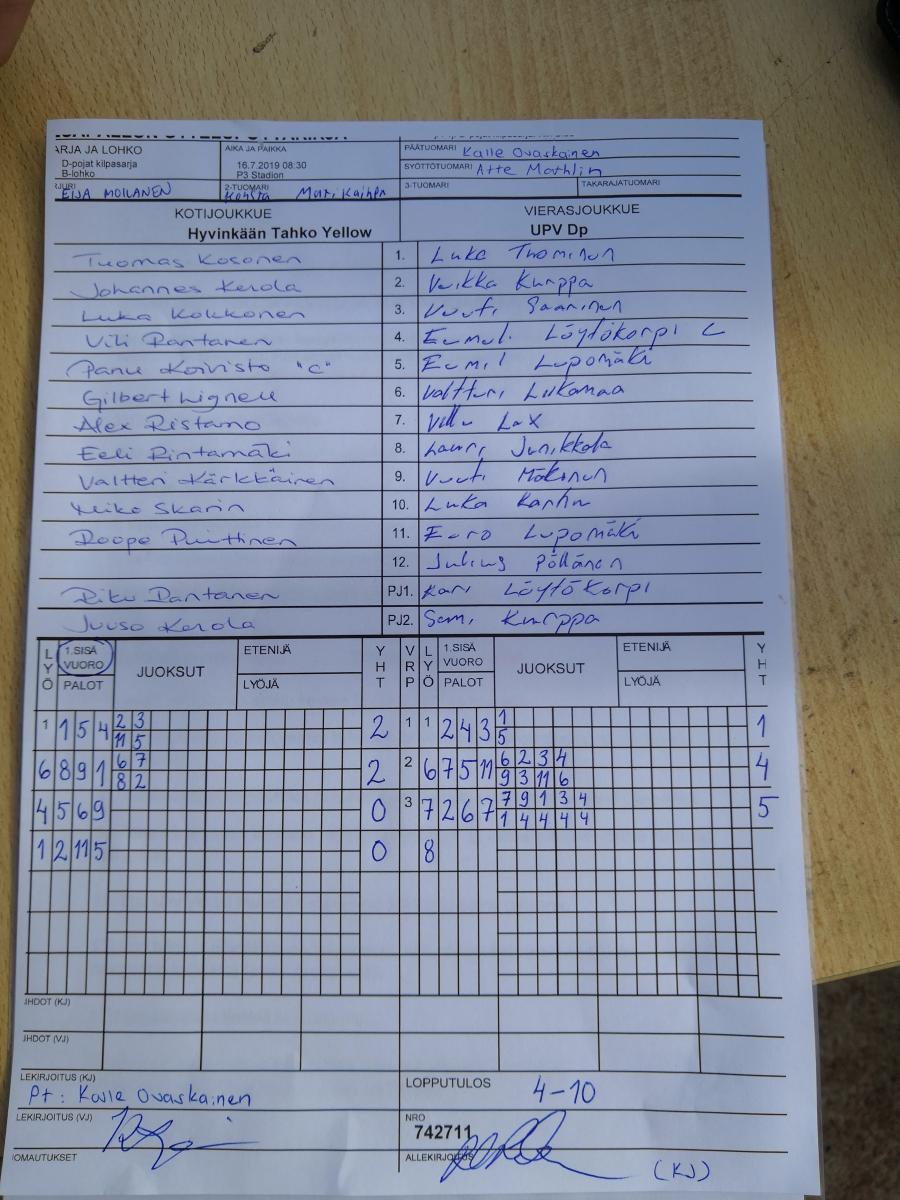 ARJA JA LOHKO
D-pojat kilpasarja
B-lohko
AIKA JA PAIKKA
16.7.2019 08:30
P3 Stadion
PÄÄTUOMARI Kalle Ovaskainen
SYÖTTÖTUOMARI Atte Mathlin
EIJA MOILANEN
2-TUOMARI
3-TUOMARI
TAKARAJATUOMARI
KOTIJOUKKUE
Hyvinkään Tahko Yellow
VIERASJOUKKUE
UPV Dp
Tuomas Kosonen 1. Luka Thominen
Johannes Kerola 2. Veikka Kurppa
Luka Kokkonen 3. Saarinen
Vili Rantanen 4. Löytökorpi C
Panu Koivisto "C" 5. Eemil Lupomäki
Gilbert Lignell 6. Valtteri Liikamaa
Alex Ristamo 7. Ville Lax
Eeli Rintamäki 8. Lauri Junikkala
Valtteri Kärkkäinen 9. Mäkinen
Miko Skarin 10. Luka
Roope Puittinen 11. Eero Lupomäki
12. Julius Pöllänen
Riku Rantanen PJ1. Kari Löytökorpi
Juuso Kerola PJ2. Sami Kurppa
LYÖ 1.SISÄ VUORO PALOT JUOKSUT ETENIJÄ LYÖJÄ YHT VRP LYÖ 1.SISÄ VUORO PALOT JUOKSUT ETENIJÄ LYÖJÄ YHT
1 1 5 4 2 3 2 1 1 2 4 3 1 1
11 5 5
6 8 9 1 6 7 2 2 6 7 5 11 6 2 3 4 4
8 2 9 3 11 6
4 5 6 9 0 3 7 2 6 7 7 9 1 3 4 5
1 4 4 4 4
1 2 11 5 0 8
JHDOT (KJ)
JHDOT (VJ)
LEKIRJOITUS (KJ)
Pt: Kalle Ovaskainen
LOPPUTULOS 4-10
LEKIRJOITUS (VJ)
NRO
742711
OMAUTUKSET
ALLEKIRJOITUS
(KJ)